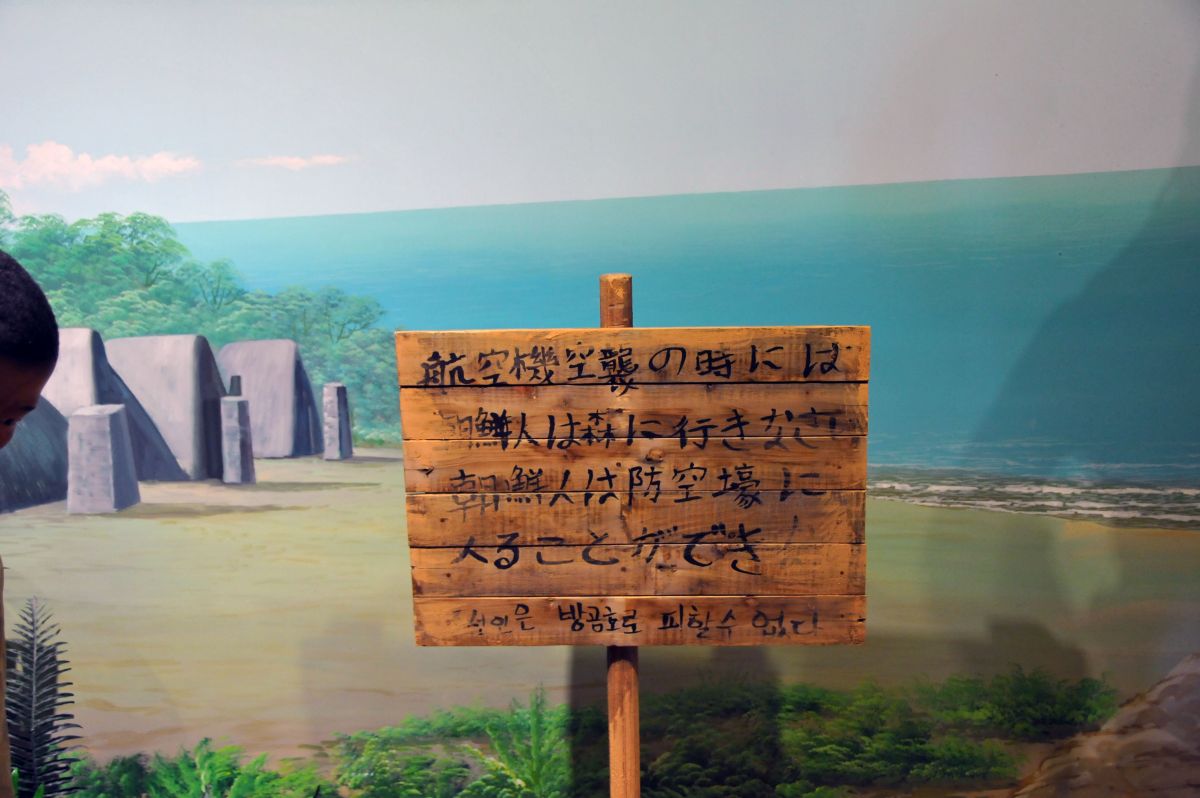 航空機空襲の時には
朝鮮人は森に行きなさい
朝鮮人は防空壕に
入ることができ
선인은 방곰호로 피할수 없다